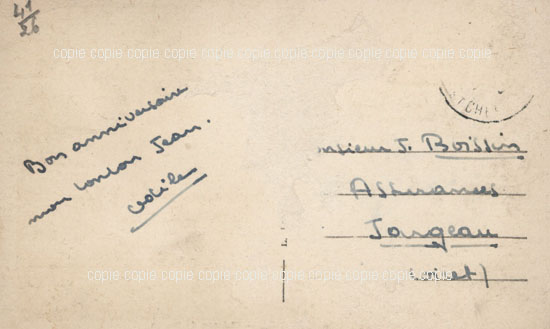 41
26
copie copie copie copie copie copie copie copie copie
TCHE
Bon anniversaire
mon tonton Jean.
Odile
nsieur J. Boissin
Assurances
Jargeau
(Loiret)
copie copie copie copie copie copie copie copie copie copie